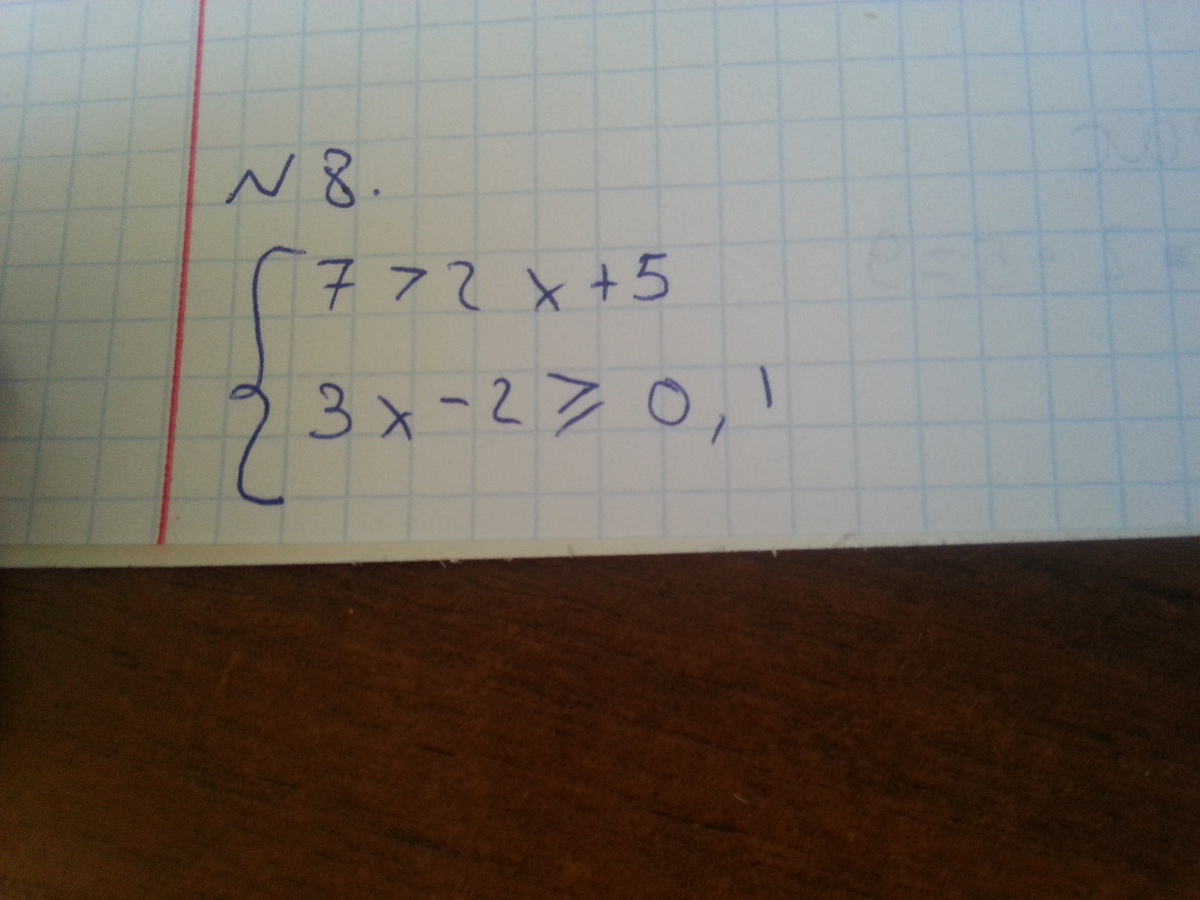 N 8.
7 > 2 x + 5
3 x - 2 ⩾ 0, 1